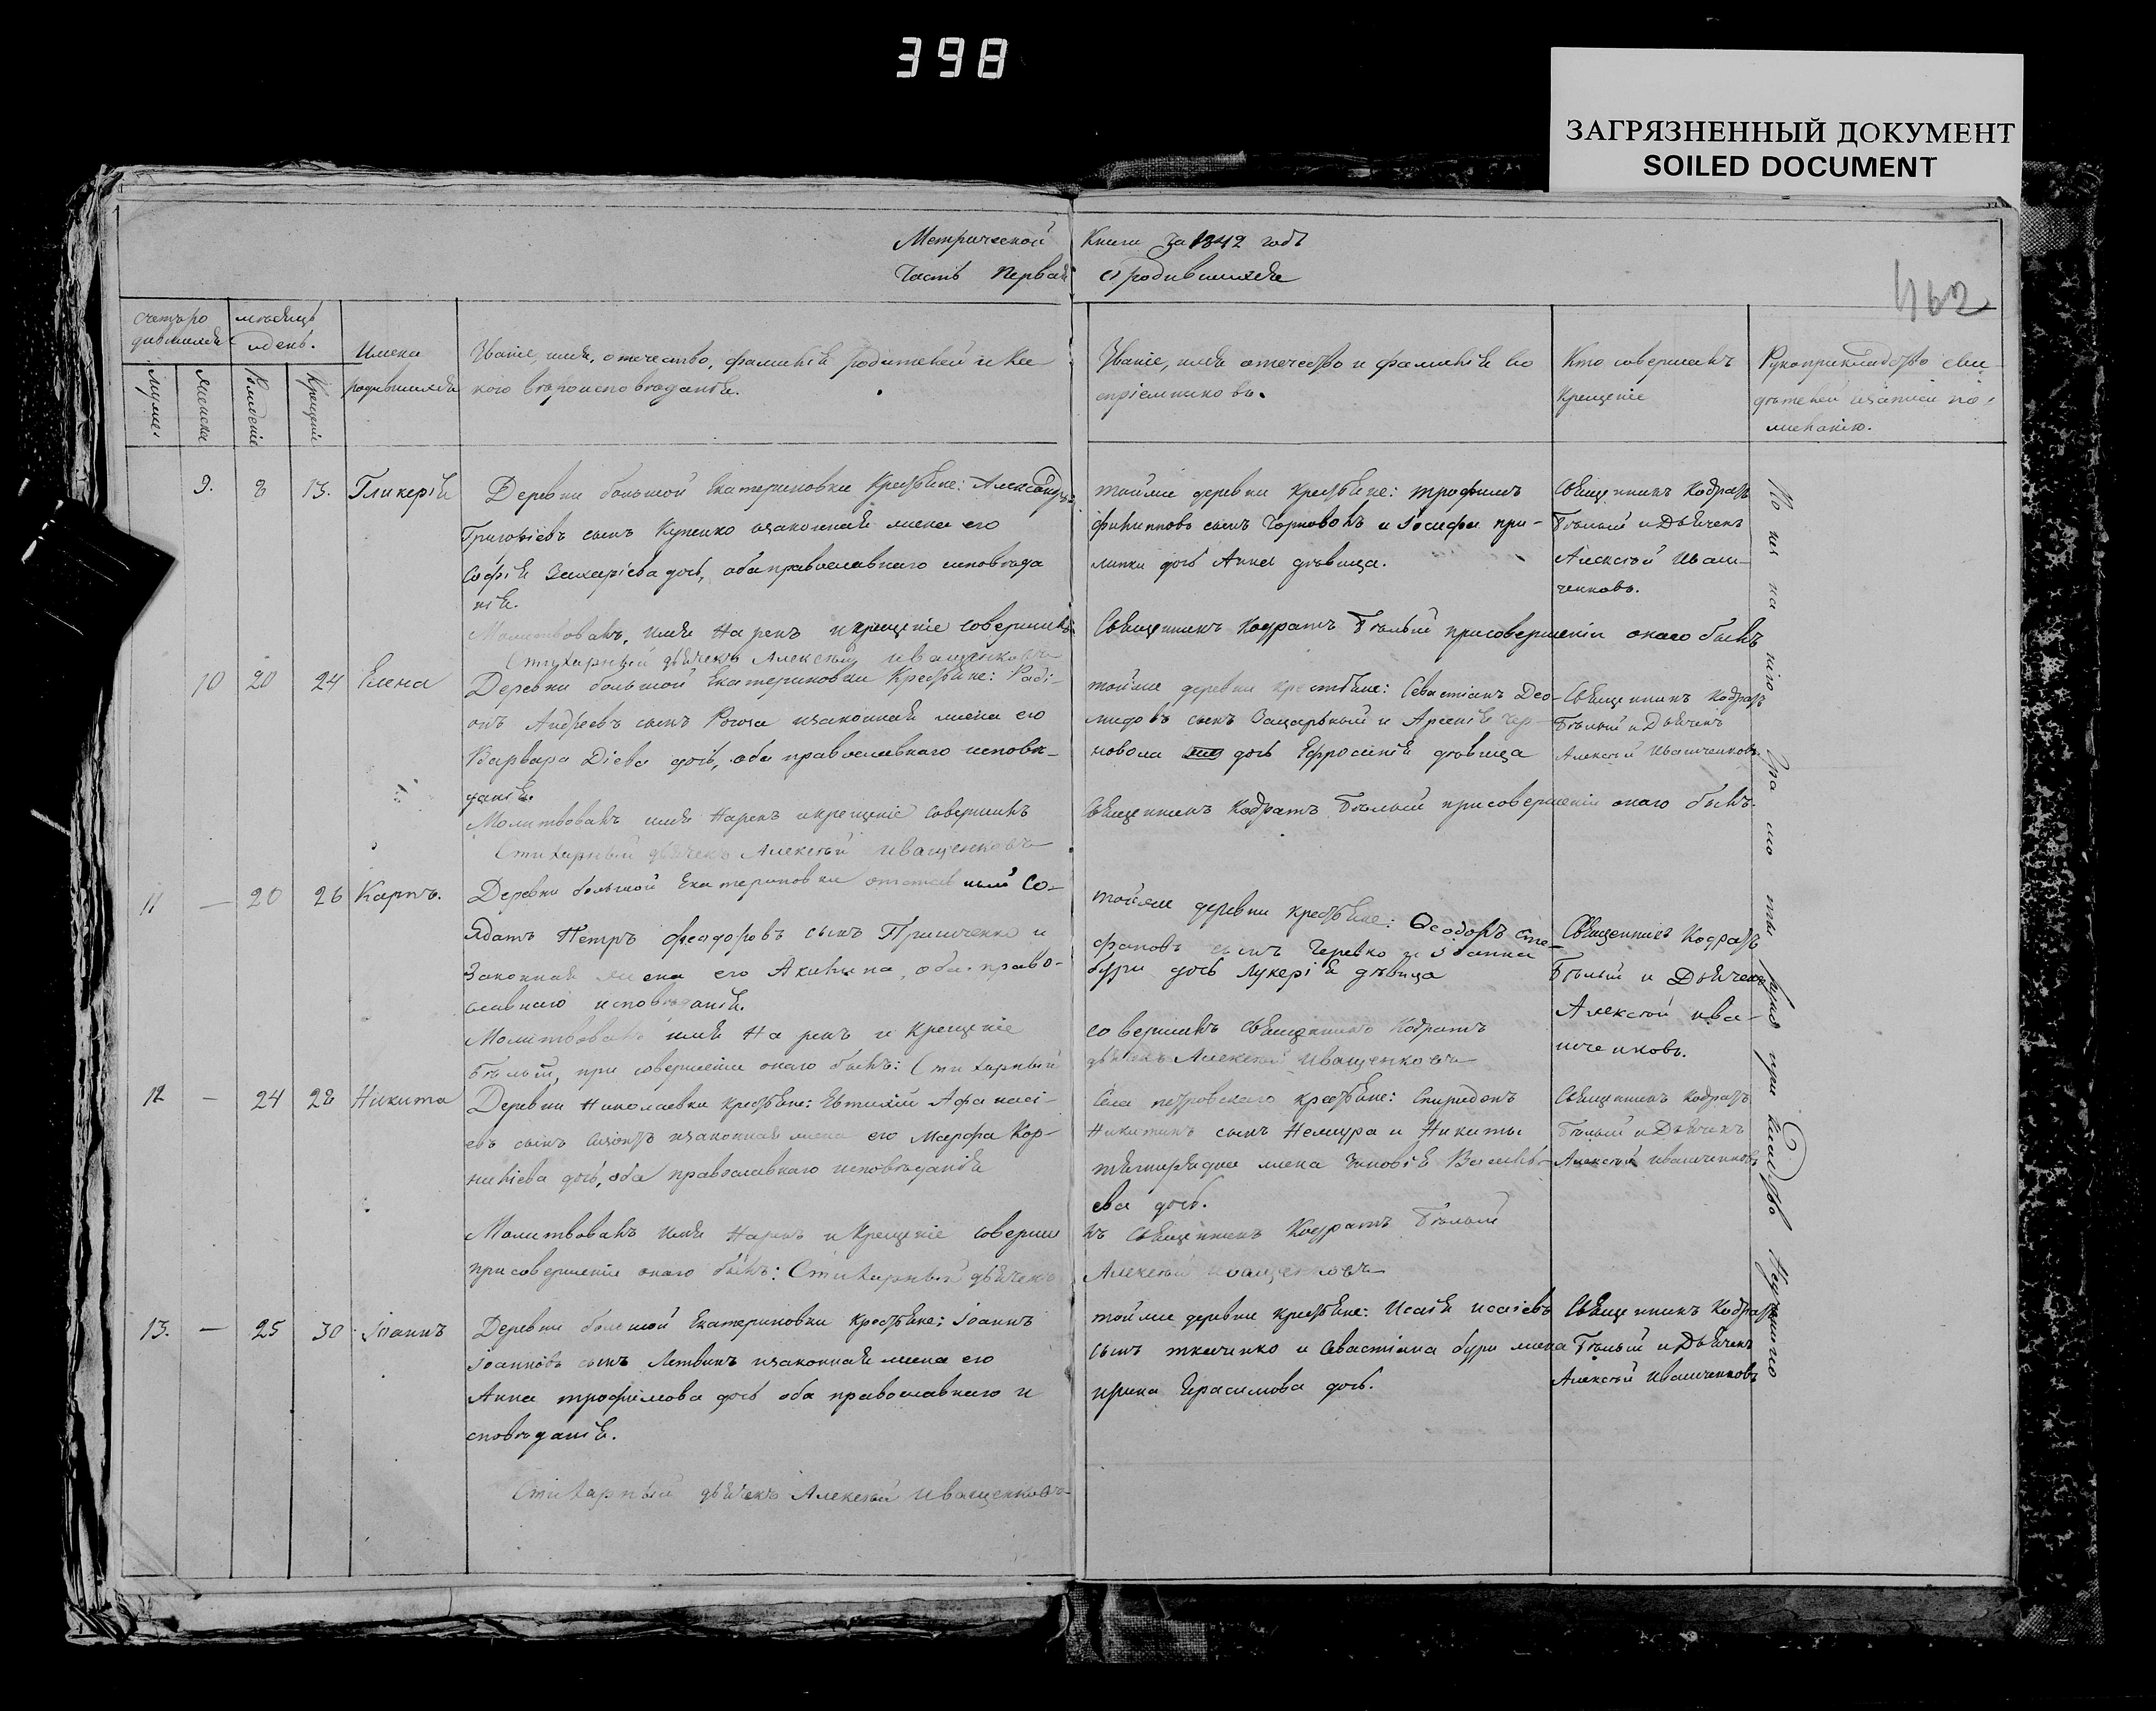 398
ЗАГРЯЗНЕННЫЙ ДОКУМЕНТ
SOILED DOCUMENT
Метрической Книги за 1842 годъ
Часть Первая О родившихся
462
Счетъ ро
дившихся
мѣсяцъ
и день.
Имена
родившихся
Званіе, имя, отечество, фамилія родителей и ка
кого вѣроисповѣданія.
Званіе, имя отечество и фамилія во
спріемниковъ.
Кто совершалъ
Крещеніе
Рукоприкладство сви
дѣтелей записи по
желанію.
Мужеска
Женска
Рожденіе
Крещеніе
9. 8 13. Гликерія
Деревни большой Екатериновки Крестьяне: Александръ
Григоріевъ сынъ Куценко и законная жена его
Софія Захаріева дочь, оба православнаго исповѣда
нія.
Молитвовалъ, имя нарекъ и крещеніе совершилъ
Стихарный дьячекъ Алексѣй Иващенковъ
тойже деревни крестьяне: Трофимъ
Филипповъ сынъ Чорноволъ и Іосифа при-
липки дочь Анна дѣвица.
Священникъ Кодратъ Бѣлый при совершеніи онаго былъ
Священникъ Кодратъ
Бѣлый и Дьячекъ
Алексѣй Иван-
ченковъ.
10 20 24 Елена
Деревни большой Екатериновки Крестьяне: Раді-
онъ Андреевъ сынъ Рогоза и законная жена его
Варвара Діева дочь, оба православнаго исповѣ-
данія.
Молитвовалъ имя нарекъ и крещеніе совершилъ
Стихарный дьячекъ Алексѣй Иващенковъ
тойже деревни крестьяне: Севастіанъ Део-
мидовъ сынъ и Арсенія чер-
новола дочь Ефросинія дѣвица
Священникъ Кодратъ Бѣлый при совершеніи онаго былъ.
Священникъ Кодратъ
Бѣлый и Дьячекъ
Алексѣй Иванченковъ
11 — 20 26 Карпъ.
Деревни большой Екатериновки отставный Со-
лдатъ Петръ Феодоровъ сынъ и
Законная жена его Акилина, оба право-
славнаго исповѣданія.
Молитвовалъ имя нарекъ и Крещеніе
Бѣлый, при совершеніи онаго былъ: Стихарный
тойже деревни крестьяне: Ѳеодоръ Сте-
фановъ сынъ Черевко и Іоанна
бури дочь Лукерія дѣвица
совершилъ Священникъ Кодратъ
дьячекъ Алексѣй Иващенковъ
Священникъ Кодратъ
Бѣлый и Дьячекъ
Алексѣй Ива-
нченковъ.
12 — 24 28 Никита
Деревни Николаевки крестьяне: Евтихій Афанасі-
евъ сынъ и законная жена его Марфа Кор-
ниліева дочь, оба православнаго исповѣданія
Молитвовалъ имя нарекъ и Крещеніе соверши
при совершеніи онаго былъ: Стихарный дьячекъ
Села петровскаго крестьяне: Спиридонъ
Никитинъ сынъ Немира и Никиты
жена Зиновія Василь-
ева дочь.
лъ Священникъ Кодратъ Бѣлый
Алексѣй Иващенковъ
Священникъ Кодратъ
Бѣлый и Дьячекъ
Алексѣй Иванченковъ
13. — 25 30 Іоаннъ
Деревни большой Екатериновки крестьяне: Іоаннъ
Іоанновъ сынъ Литвинъ и законная жена его
Анна трофимова дочь оба православнаго и
сповѣданія.
Стихарный дьячекъ Алексѣй Иващенковъ
тойже деревни крестьяне: Исаія Исаіевъ
сынъ ткаченко и Севастіана бури жена
ирина Герасимова дочь.
Священникъ Кодратъ
Бѣлый и Дьячекъ
Алексѣй Иванченковъ